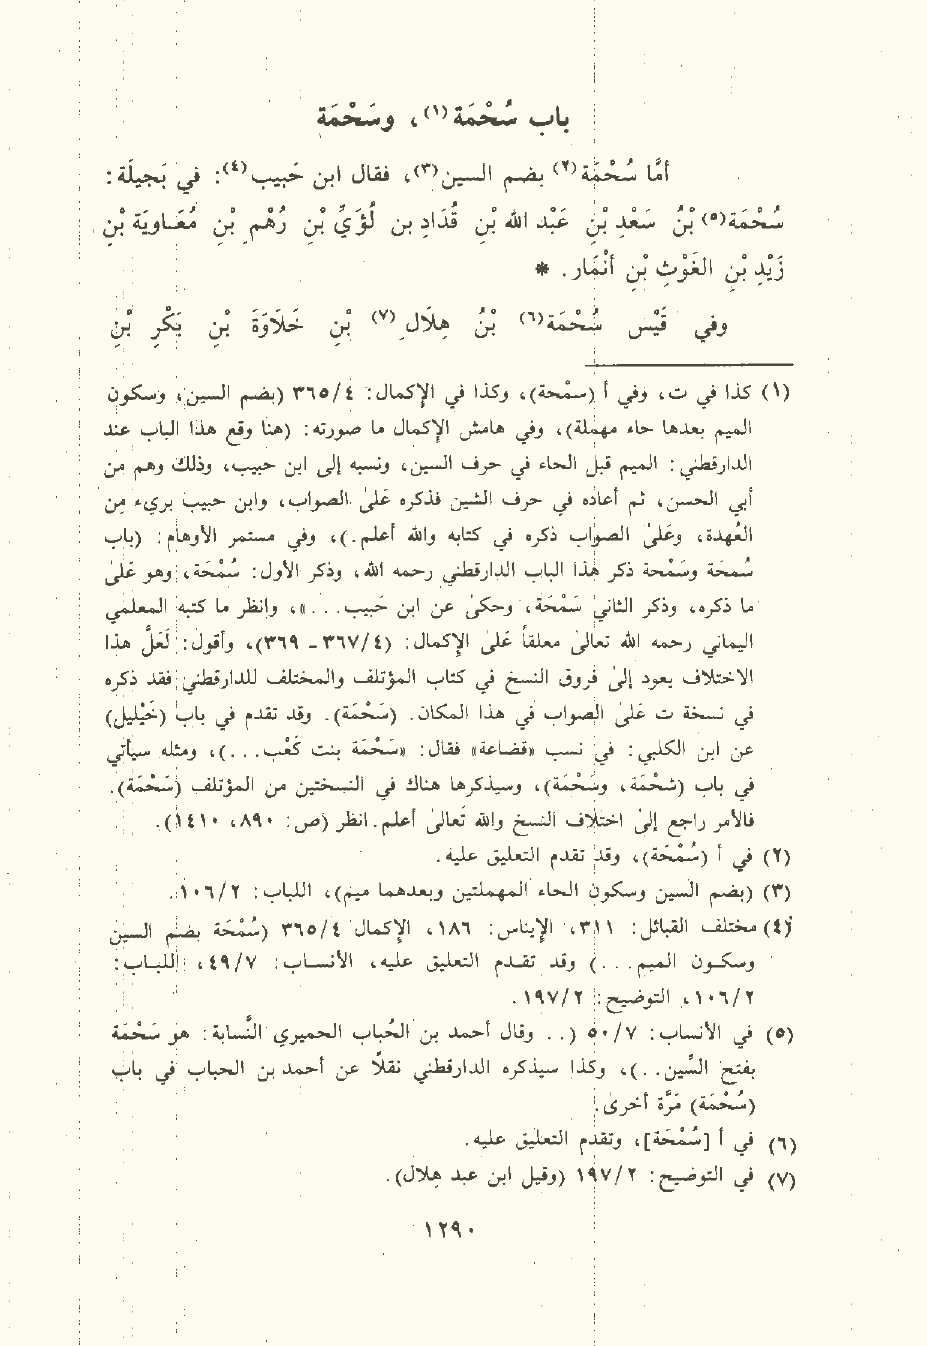 باب سُحْمَة(١)، وسَحْمَة
أمَّا سُحْمَة(٢) بضم السين(٣)، فقال ابن حَبيب(٤): في بَجيلَة:
سُحْمَة(٥) بْنُ سَعْدِ بْنِ عَبْدِ الله بْنِ قُدَادِ بن لُؤَيِّ بْنِ رُهْمِ بْنِ مُعَـاوِيَة بْنِ
زَيْدِ بْنِ الغَوْثِ بْنِ أنْمَار. *
وفي قَيْس سُحْمَة(٦) بْنُ هِلَالِ(٧) بْنِ خَلَاوَةَ بْنِ بَكْرِ بْنِ
(١) كذا في ت، وفي أ (سمحة)، وكذا في الإكمال: ٣٦٥/٤ (بضم السين، وسكون
الميم بعدها حاء مهملة)، وفي هامش الإكمال ما صورته: (هنا وقع هذا الباب عند
الدارقطني: الميم قبل الحاء في حرف السين، ونسبه إلى ابن حبيب، وذلك وهم من
أبي الحسن، ثم أعاده في حرف الشين فذكره علىٰ الصواب، وابن حبيب بريء من
العُهدة، وعلىٰ الصواب ذكره في كتابه والله أعلم.)، وفي مستمر الأوهام: (باب
سُمحَة وسمحة ذكر هذا الباب الدارقطني رحمه الله، وذكر الأول: سُمْحَة، وهو علىٰ
ما ذكره، وذكر الثاني سَمْحَة، وحكىٰ عن ابن حَبيب...»، وانظر ما كتبه المعلمي
اليماني رحمه الله تعالىٰ معلقاً علىٰ الإكمال: (٣٦٧/٤ - ٣٦٩)، وأقول: لَعَلَّ هذا
الاختلاف يعود إلىٰ فروق النسخ في كتاب المؤتلف والمختلف للدارقطني؛ فقد ذكره
في نسخة ت علىٰ الصواب في هذا المكان. (سَحْمَة). وقد تقدم في باب (خَلِيلي)
عن ابن الكلبي: في نسب «قضاعة» فقال: «سَحْمَة بنت كَعْب...)، ومثله سيأتي
في باب (شَحْمَة، وسَحْمَة)، وسيذكرها هناك في النسختين من المؤتلف (سَحْمَة).
فالأمر راجع إلىٰ اختلاف النسخ والله تَعالىٰ أعلم. انظر (ص: ٨٩٠، ١٤١٠).
(٢) في أ (سُمْحَة)، وقد تقدم التعليق عليه.
(٣) (بضم السين وسكون الحاء المهملتين وبعدهما ميم)، اللباب: ١٠٦/٢.
(٤) مختلف القبائل: ٣١١، الإيناس: ١٨٦، الإكمال ٣٦٥/٤ (سُمْحَة بضم السين
وسكـون الميم...) وقد تقـدم التعليق عليه، الأنسـاب: ٤٩/٧، اللبـاب:
١٠٦/٢، التوضيح: ١٩٧/٢.
(٥) في الأنساب: ٥٠/٧ (.. وقال أحمد بن الحُباب الحميري النَّسابة: هو سَحْمَة
بفتح السِّين..)، وكذا سيذكره الدارقطني نقلاً عن أحمد بن الحباب في باب
(سُحْمَة) مَرَّة أخرى.
(٦) في أ [سُمْحَة]، وتقدم التعليق عليه.
(٧) في التوضيح: ١٩٧/٢ (وقيل ابن عبد هِلال).
١٢٩٠